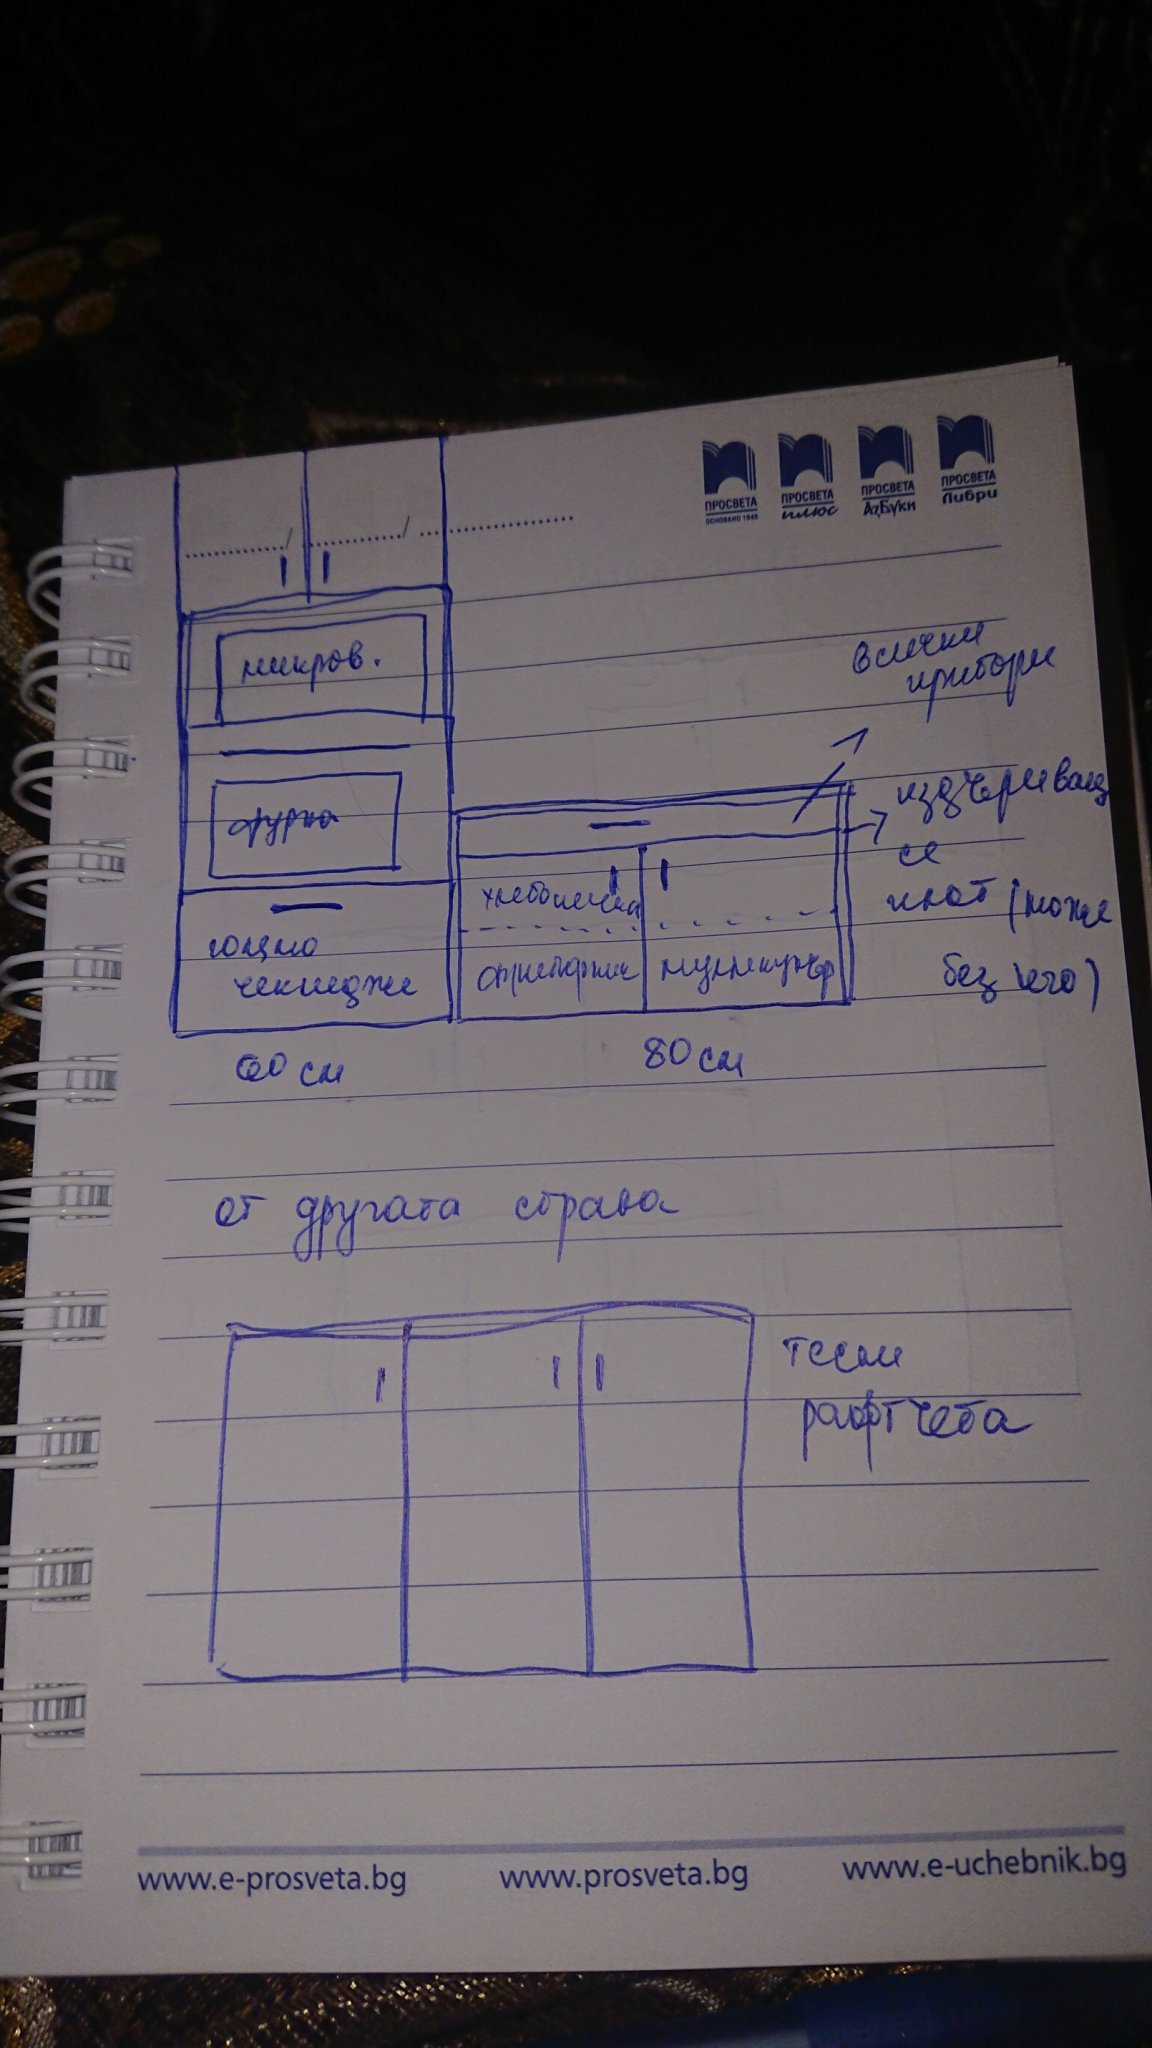 ПРОСВЕТА
ОСНОВАНО 1945
ПРОСВЕТА
плюс
ПРОСВЕТА
АзБуки
ПРОСВЕТА
Либри
микров.
фурна
голямо
чекмедже
60 см
всички
прибори
хлебопечка
фритюрник
мултикукър
80 см
издърпващ
се
плот (може
без него)
от другата страна
тесни
рафтчета
www.e-prosveta.bg
www.prosveta.bg
www.e-uchebnik.bg